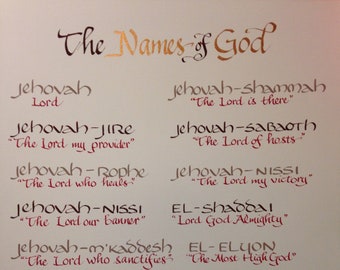 The Names of God
Jehovah
Lord
Jehovah-Jire
"The Lord my provider"
Jehovah-Rophe
"The Lord who heals"
Jehovah-Nissi
"The Lord our banner"
Jehovah-M'Kaddesh
"The Lord who sanctifies"
Jehovah-Shammah
"The Lord is there"
Jehovah-Sabaoth
"The Lord of hosts"
Jehovah-Nissi
"The Lord my victory"
El-Shaddai
"Lord God Almighty"
El-Elyon
"The Most High God"